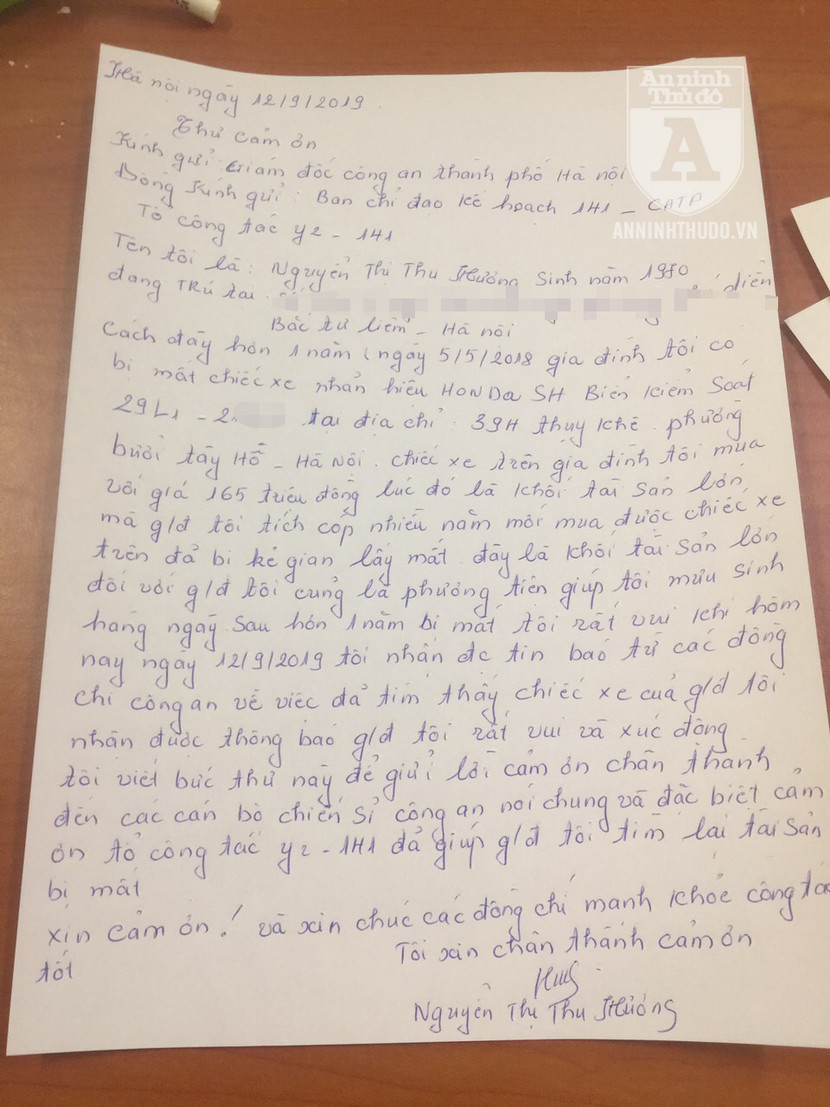 An ninh
Thủ đô
A
ANNINHTHUDO.VN
Hà nội ngày 12/9/2019.
Thư cảm ơn
Kính gửi: Giám đốc công an thành phố Hà nội
Đồng kính gửi: Ban chỉ đạo kế hoạch 141 - CATP
Tổ công tác y2 - 141
Tên tôi là: Nguyễn Thị Thu Hường Sinh năm 1980
đang Trú tại: diễn
Bắc từ liêm - Hà nội
Cách đây hơn 1 năm ngày 5/5/2018 gia đình tôi có
bị mất chiếc xe nhãn hiệu HONDa SH Biển kiểm Soát
29L1 - 2 tại địa chỉ: 39H thụy khê phường
bưởi tây Hồ - Hà Nội. chiếc xe trên gia đình tôi mua
với giá 165 triệu đồng lúc đó là khối tài sản lớn
mà g/đ tôi tích cóp nhiều năm mới mua được chiếc xe
trên đã bị kẻ gian lấy mất. đây là khối tài sản lớn
đối với g/đ tôi cũng là phương tiện giúp tôi mưu sinh
hàng ngày sau hơn 1 năm bị mất tôi rất vui khi hôm
nay ngày 12/9/2019 tôi nhận đc tin báo từ các đồng
chí công an về việc đã tìm thấy chiếc xe của g/đ tôi
nhận được thông báo g/đ tôi rất vui và xúc động
tôi viết bức thư này để giửi lời cảm ơn chân thành
đến các cán bộ chiến sĩ công an nói chung và đặc biệt cảm
ơn tổ công tác y2 - 141 đã giúp g/đ tôi tìm lại tài sản
bị mất
xin cảm ơn! và xin chúc các đồng chí mạnh khỏe công tác
tốt
Tôi xin chân thành cảm ơn
Nguyễn Thị Thu Hường